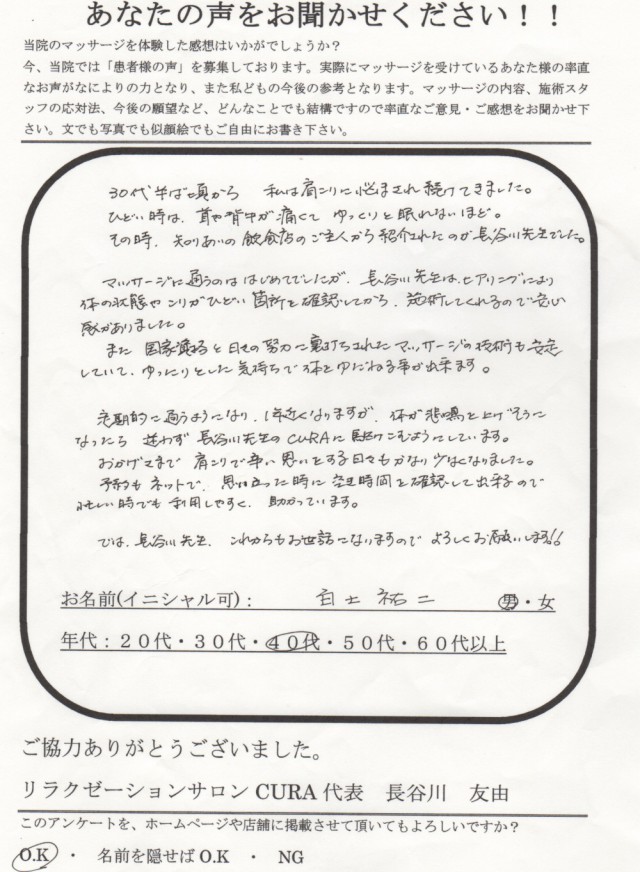 あなたの声をお聞かせください！！
当院のマッサージを体験した感想はいかがでしょうか？
今、当院では「患者様の声」を募集しております。実際にマッサージを受けているあなた様の率直
なお声がなによりの力となり、また私どもの今後の参考となります。マッサージの内容、施術スタ
ッフの応対法、今後の願望など、どんなことでも結構ですので率直なご意見・ご感想をお聞かせ下
さい。文でも写真でも似顔絵でもご自由にお書き下さい。
30代半ば頃から 私は肩こりに悩まされ続けてきました。
ひどい時は、耳や背中が痛くて ゆっくりと眠れないほど。
その時、知りあいの飲食店のご主人から紹介されたのが長谷川先生でした。
マッサージに通うのははじめてでしたが、長谷川先生は、ヒアリングにより
体の状態やこりがひどい箇所を確認してから、施術してくれるので安心
感がありました。
また 国家資格と日々の努力に裏打ちされたマッサージの技術も安定
していて、ゆったりとした気持ちで体をゆだねる事が出来ます。
定期的に通うようになり、1年近くなりますが、体が悲鳴を上げそうに
なったら 迷わず 長谷川先生のCURAに駆けこむようにしています。
おかげさまで 肩こりで辛い思いをする日々もかなり少なくなりました。
予約もネットで、思い立った時に空き時間を確認して出来るので
忙しい時でも利用しやすく、助かっています。
では、長谷川先生、これからもお世話になりますので よろしくお願いします!!
お名前(イニシャル可)： 白土 祐二 男・女
年代：２０代・３０代・４０代・５０代・６０代以上
ご協力ありがとうございました。
リラクゼーションサロン CURA 代表 長谷川 友由
このアンケートを、ホームページや店舗に掲載させて頂いてもよろしいですか？
O.K ・ 名前を隠せば O.K ・ NG